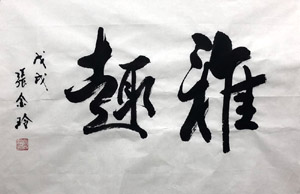 雅趣
戊戌
張金玲